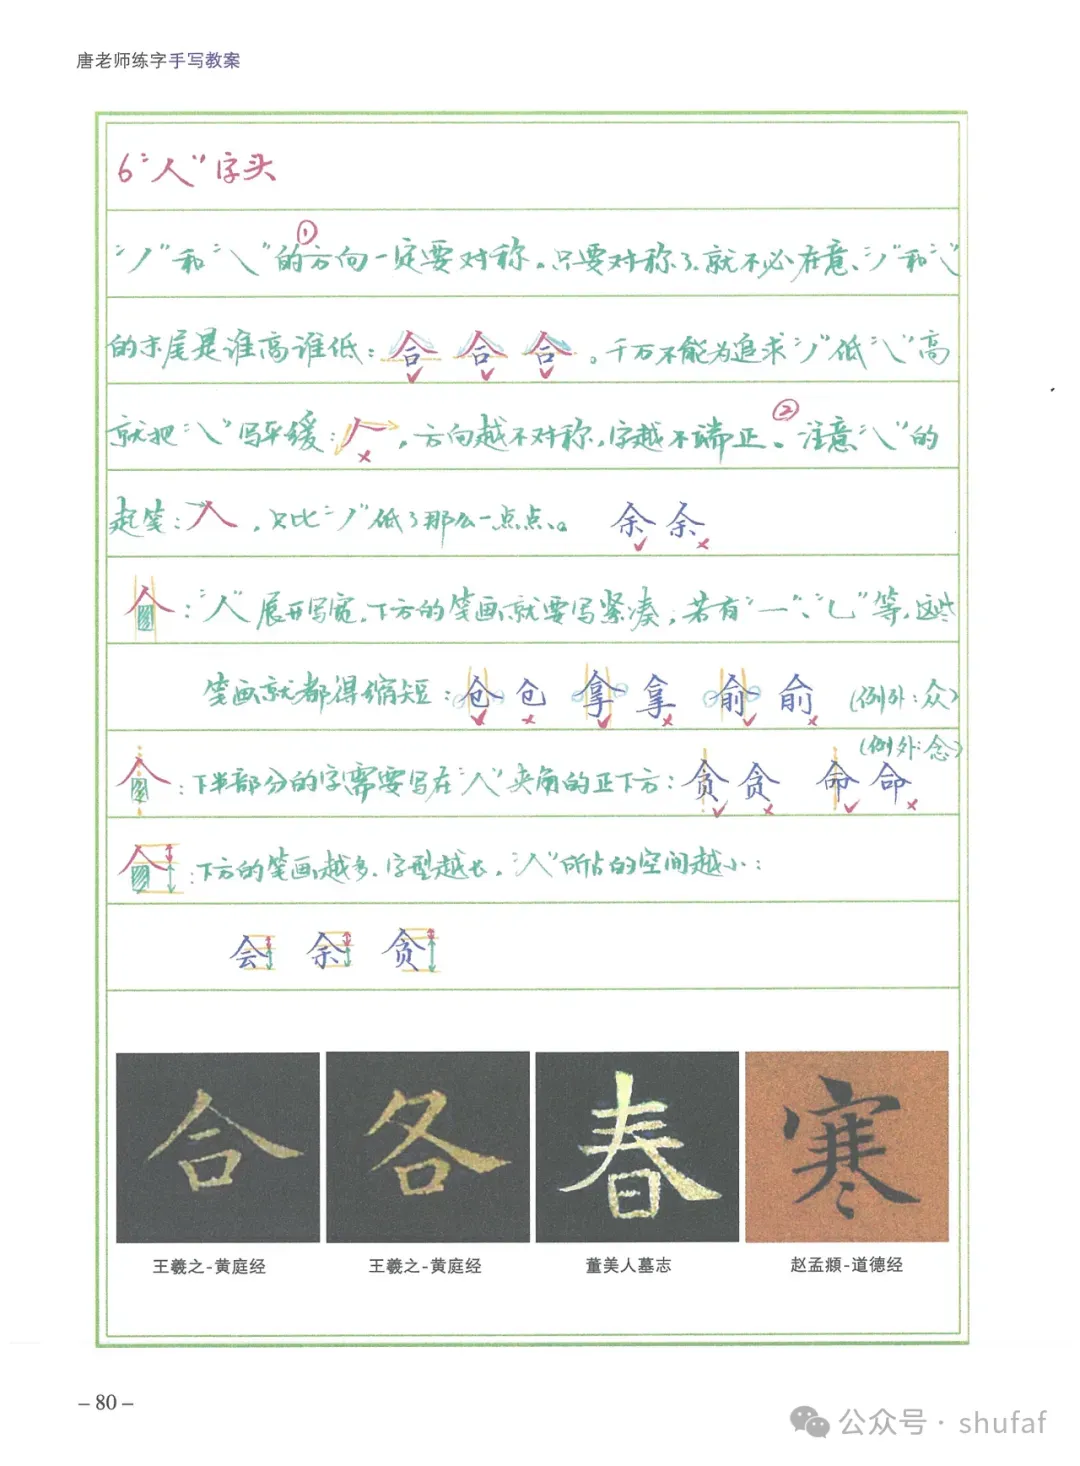 唐老师练字手写教案
6“人”字头
“丿”和“㇏”的①方向一定要对称。只要对称了,就不必在意“丿”和“㇏”
的末尾是谁高谁低:合 合 合。千万不能为追求“丿”低“㇏”高
就把“㇏”写平缓:人,方向越不对称,字越不端正。②注意“㇏”的
起笔:人,只比“丿”低了那么一点点。 余 余
“人”展开写宽,下方的笔画就要写紧凑;若有“一”、“乚”等,这些
笔画就都得缩短:仓 仓 拿 拿 俞 俞 (例外:众)
(例外:念)
:下半部分的字需要写在“人”夹角的正下方:贪 贪 命 命
:下方的笔画越多,字型越长,“人”所占的空间越小:
会 余 贪
合 各 春 寒
王羲之-黄庭经 王羲之-黄庭经 董美人墓志 赵孟頫-道德经
– 80 –
公众号 · shufaf